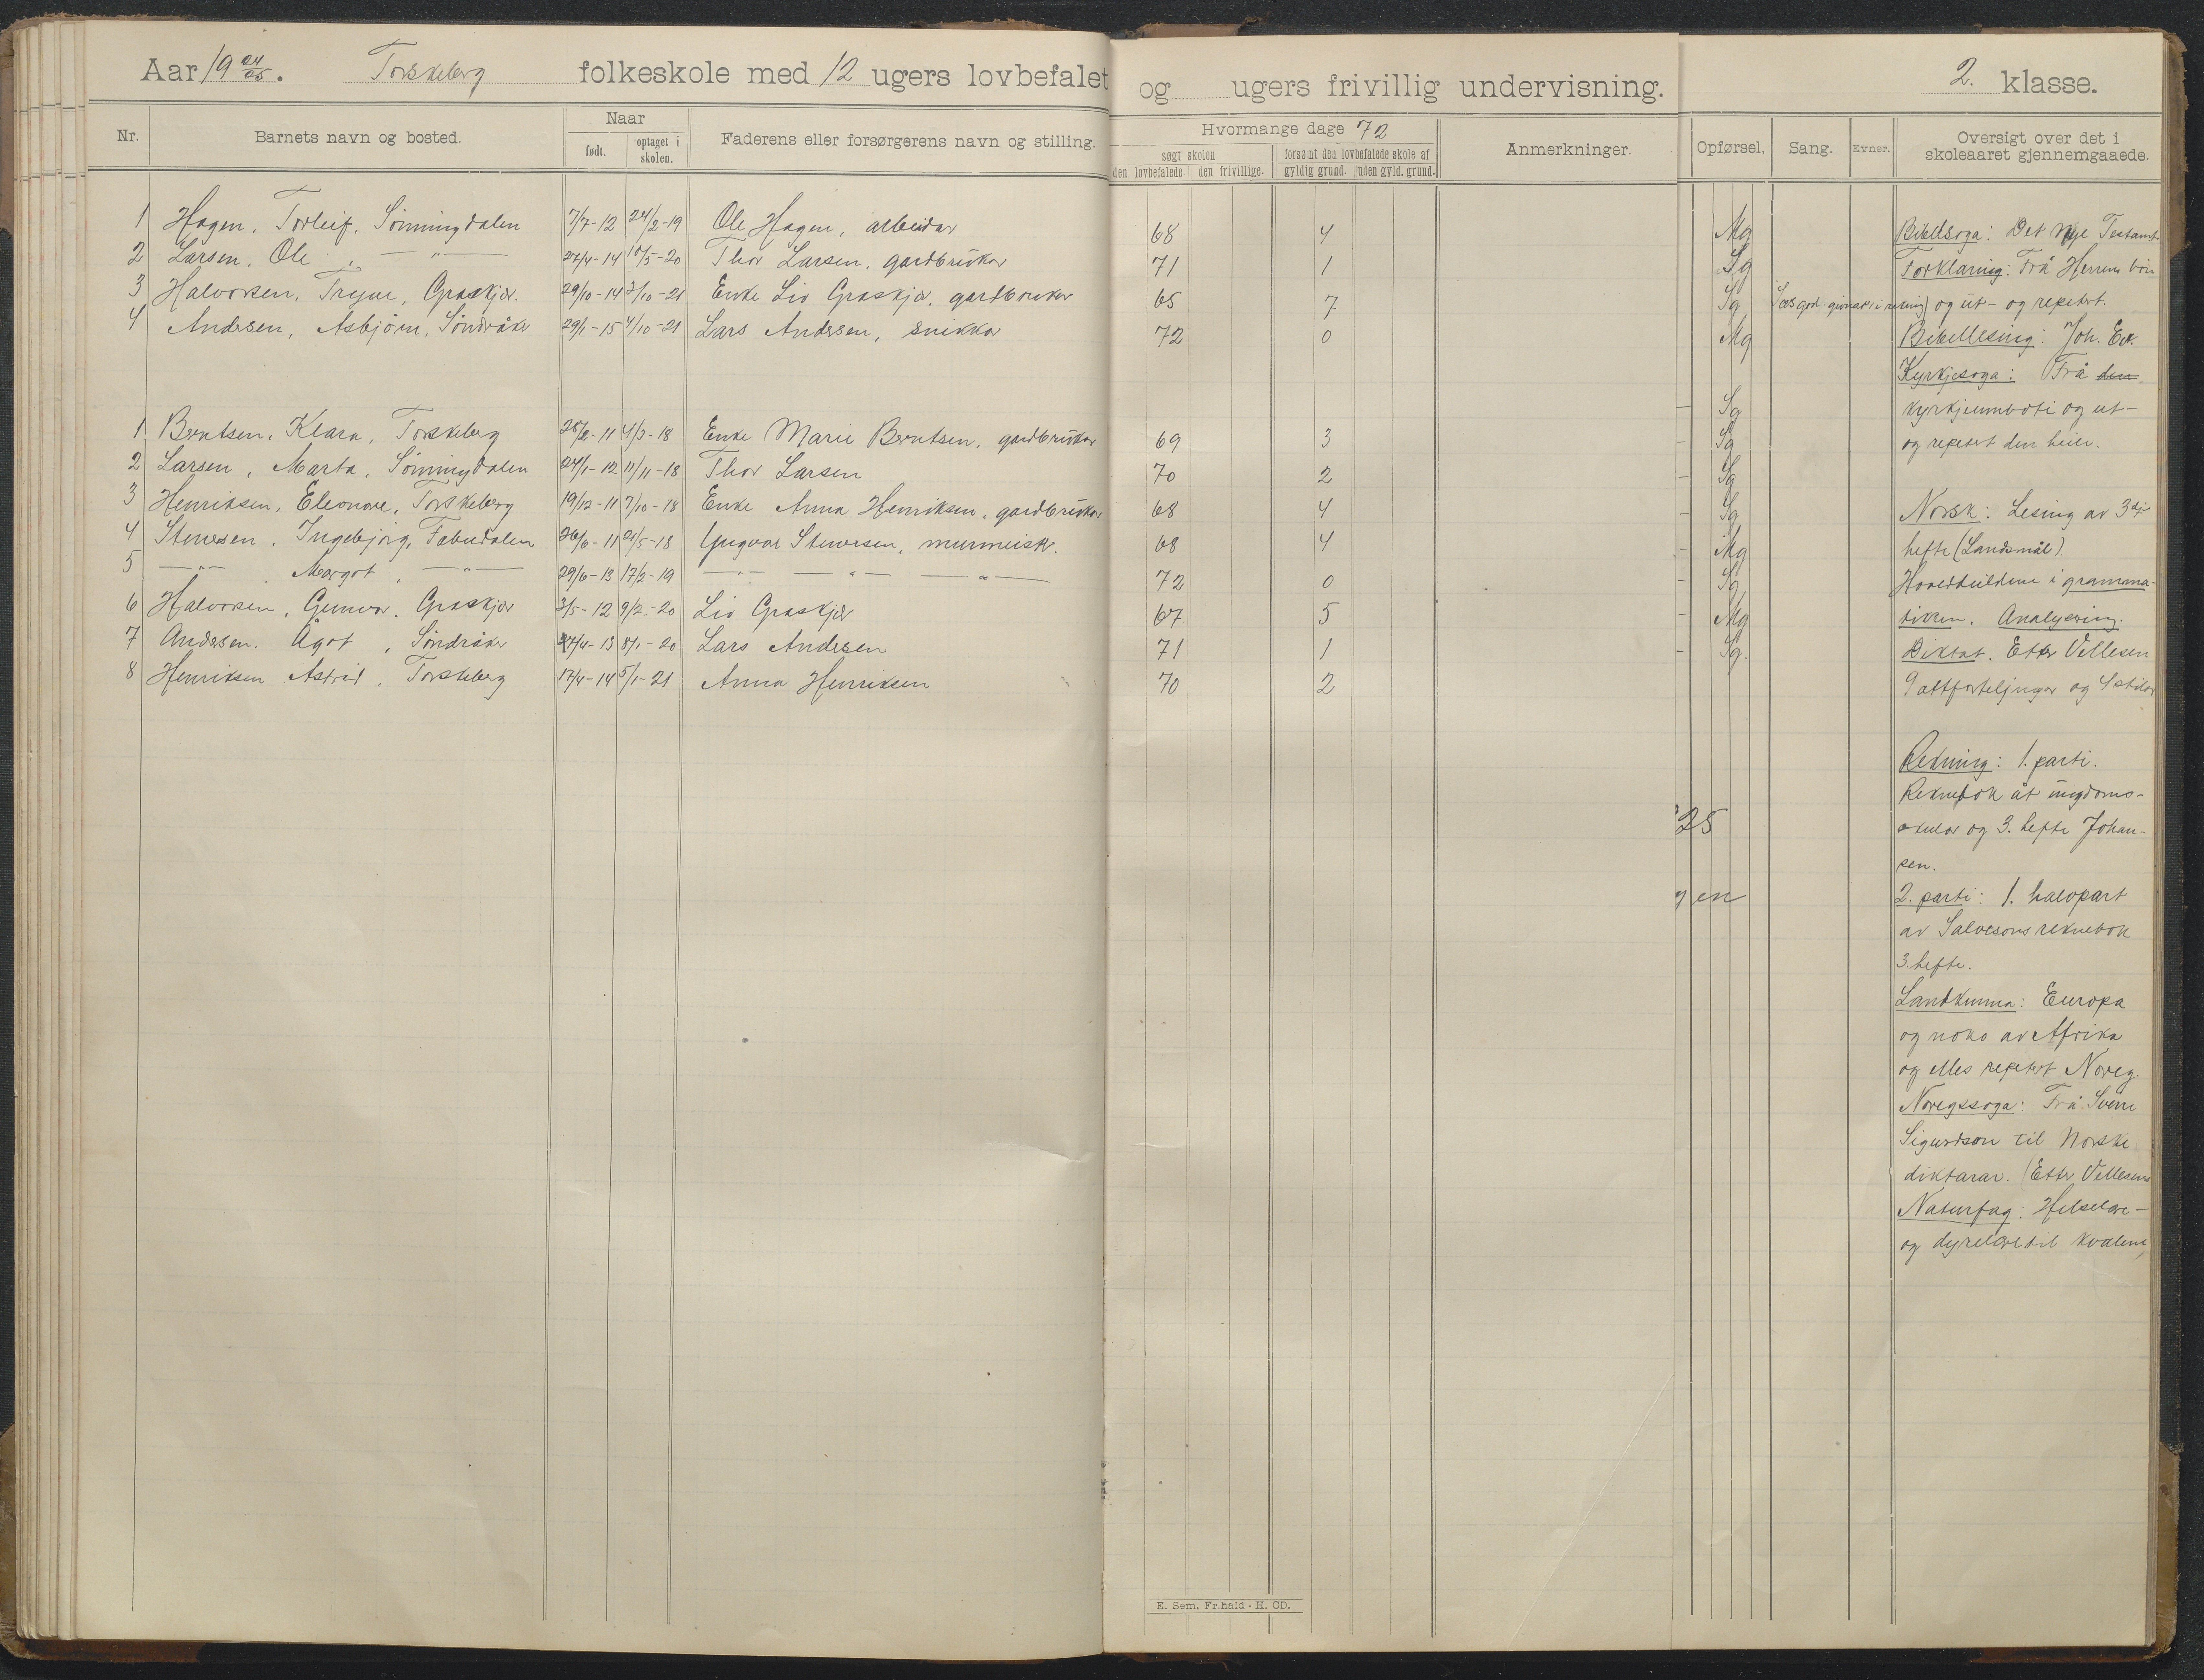 Aar 19 24/25. Torskeberg folkeskole med 12 ugers lovbefalet og ugers frivillig undervisning. 2. klasse.
Nr. Barnets navn og bosted. Naar født. optaget i skolen. Faderens eller forsørgerens navn og stilling. Hvormange dage 72 søgt skolen den lovbefalede. den frivillige. forsømt den lovbefalede skole af gyldig grund. uden gyld. grund. Anmerkninger. Opførsel. Sang. Evner. Oversigt over det i skoleaaret gjennemgaaede.
1 Hagen, Torleif, Sönningdalen 7/7-12 24/2-19 Ole Hagen, arbeidar 68 4 Mg
2 Larsen, Ole, —"— 27/4-14 10/5-20 Thor Larsen, gardbrukar 71 1 Sg
3 Halvorsen, Trygve, Graskjær. 29/10-14 3/10-21 Enke Liv Graskjær, gardbruker 65 7 Sg
4 Andersen, Asbjörn, Söndråker 29/1-15 4/10-21 Lars Andersen, snikkar 72 0 Mg
1 Berntsen, Klara, Torskeberg 25/2-11 4/3-18 Enke Marie Berntsen, gardbrukar 69 3 Sg
2 Larsen, Marta, Sönningdalen 24/1-12 11/11-18 Thor Larsen 70 2 Sg
3 Henriksen, Eleonore, Torskeberg 19/12-11 7/10-18 Enke Anna Henriksen, gardbrukar 68 4 Sg
4 Stenersen, Ingebjörg, Fabudalen 26/6-11 21/5-18 Yngvar Stenersen, murmeistr. 68 4 Sg
5 —"— , Margot, —"— 29/6-13 17/2-19 —"— —"— —"— 72 0 Mg
6 Halvorsen, Gunvor, Graskjær 3/5-12 9/2-20 Liv Graskjær 67 5 Sg
7 Andersen, Ågot, Söndråker 27/4-13 8/1-20 Lars Andersen 71 1 Mg
8 Henriksen Astrid, Torskeberg 17/4-14 5/1-21 Anna Henriksen 70 2 Sg.
25
gen
Bibelsoga: Det nye Testamt
Forklaring: Frå Herrens bön
og ut- og repetert.
Bibellesing: Joh. Ev.
Kyrkjesoga: Frå den
kyrkjeumboti og ut-
og repetert den heile.
Norsk: Lesing av 3dje
hefte (Landsmål).
Hovedbuldene i gramma-
tikken. Analysering.
Diktat. Etter Vellesen
9 attforteljingar og 4 stilar
Rekning: 1. parti.
Reknebok åt ungdoms-
skular og 3. hefte Johan-
sen.
2. parti: 1. halvpart
av Salvesons reknebok
3. hefte.
Landkunna: Europa
og noko av Afrika
og elles repetert Noreg.
Noregssoga: Frå Sverre
Sigurdson til Norske
diktarar. (Etter Vellesens
Naturfag: Helselære-
og dyrelære til kvalene,
E. Sem. Fr.hald - H. CD.